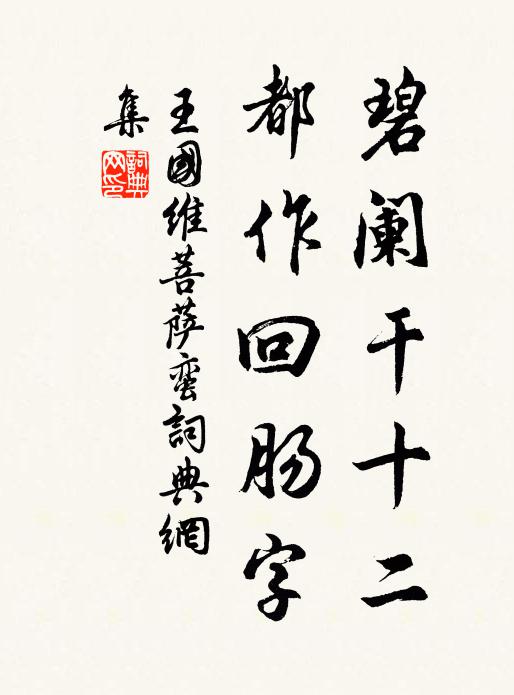 碧阑干十二
都作回肠字
王國维菩萨蛮詞典網
集
詞典
网印